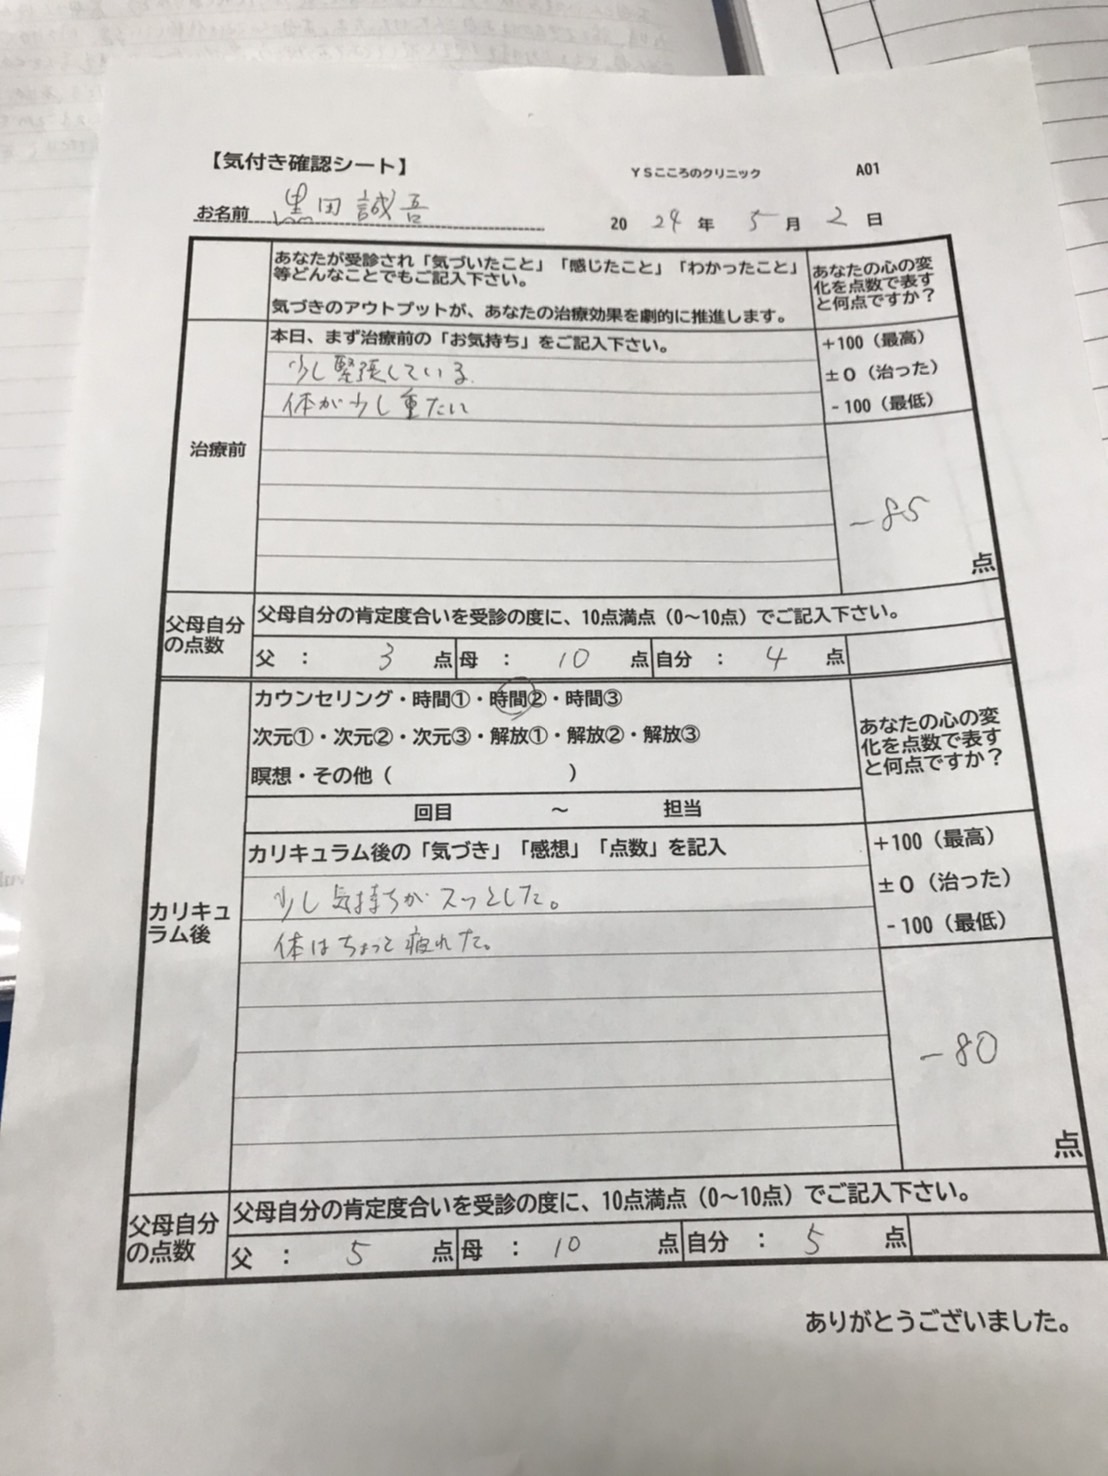 【気付き確認シート】
YSこころのクリニック
A01
お名前 黒田 誠吾
2024年 5月 2日
あなたが受診され「気づいたこと」「感じたこと」「わかったこと」
等どんなことでもご記入下さい。
気づきのアウトプットが、あなたの治療効果を劇的に推進します。
あなたの心の変
化を点数で表す
と何点ですか？
治療前
本日、まず治療前の「お気持ち」をご記入下さい。
少し緊張している。
体が少し重たい
+100（最高）
±0（治った）
-100（最低）
-85
点
父母自分
の点数
父母自分の肯定度合いを受診の度に、10点満点（0～10点）でご記入下さい。
父 ： 3 点 母 ： 10 点 自分 ： 4 点
カリキュ
ラム後
カウンセリング・時間①・時間②・時間③
次元①・次元②・次元③・解放①・解放②・解放③
瞑想・その他（ ）
回目 ～ 担当
あなたの心の変
化を点数で表す
と何点ですか？
カリキュラム後の「気づき」「感想」「点数」を記入
少し気持ちがスッとした。
体はちょっと疲れた。
+100（最高）
±0（治った）
-100（最低）
-80
点
父母自分
の点数
父母自分の肯定度合いを受診の度に、10点満点（0～10点）でご記入下さい。
父 ： 5 点 母 ： 10 点 自分 ： 5 点
ありがとうございました。